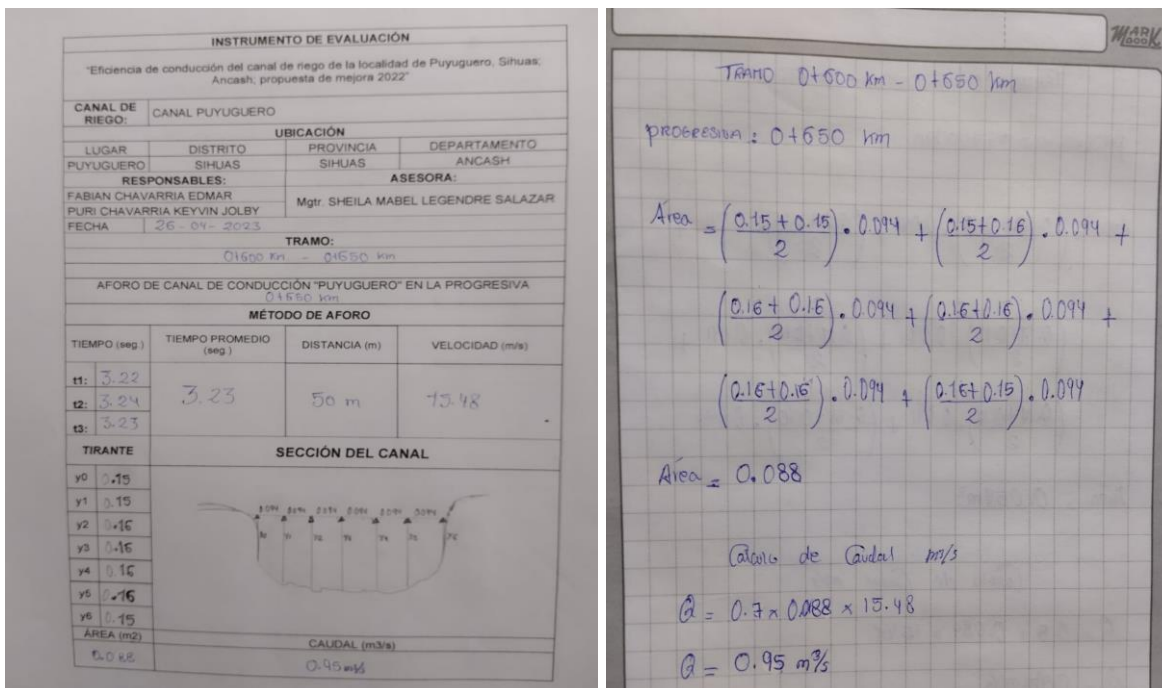 INSTRUMENTO DE EVALUACIÓN
"Eficiencia de conducción del canal de riego de la localidad de Puyuguero, Sihuas;
Ancash; propuesta de mejora 2022"
CANAL DE RIEGO: CANAL PUYUGUERO
UBICACIÓN
LUGAR DISTRITO PROVINCIA DEPARTAMENTO
PUYUGUERO SIHUAS SIHUAS ANCASH
RESPONSABLES: ASESORA:
FABIAN CHAVARRIA EDMAR
PURI CHAVARRIA KEYVIN JOLBY
Mgtr. SHEILA MABEL LEGENDRE SALAZAR
FECHA 26-04-2023
TRAMO:
0+600 Km - 0+650 km
AFORO DE CANAL DE CONDUCCIÓN "PUYUGUERO" EN LA PROGRESIVA
0+650 km
MÉTODO DE AFORO
TIEMPO (seg.) TIEMPO PROMEDIO (seg.) DISTANCIA (m) VELOCIDAD (m/s)
t1: 3.22
t2: 3.24 3.23 50 m 15.48
t3: 3.23
TIRANTE SECCIÓN DEL CANAL
y0 0.15
y1 0.15
y2 0.16
y3 0.16
y4 0.16
y5 0.16
y6 0.15
0.094 0.094 0.094 0.094 0.094 0.094
ÁREA (m2) CAUDAL (m3/s)
0.088 0.95 m³/s
MARK BOOK
TRAMO 0+600 Km - 0+650 km
PROGRESIVA: 0+650 km
Área = (0.15 + 0.15 / 2) . 0.094 + (0.15+0.16 / 2) . 0.094 +
(0.16 + 0.16 / 2) . 0.094 + (0.16+0.16 / 2) . 0.094 +
(0.16+0.16 / 2) . 0.094 + (0.16+0.15 / 2) . 0.094
Área = 0.088
Calculo de Caudal m³/s
Q = 0.7 x 0.088 x 15.48
Q = 0.95 m³/s